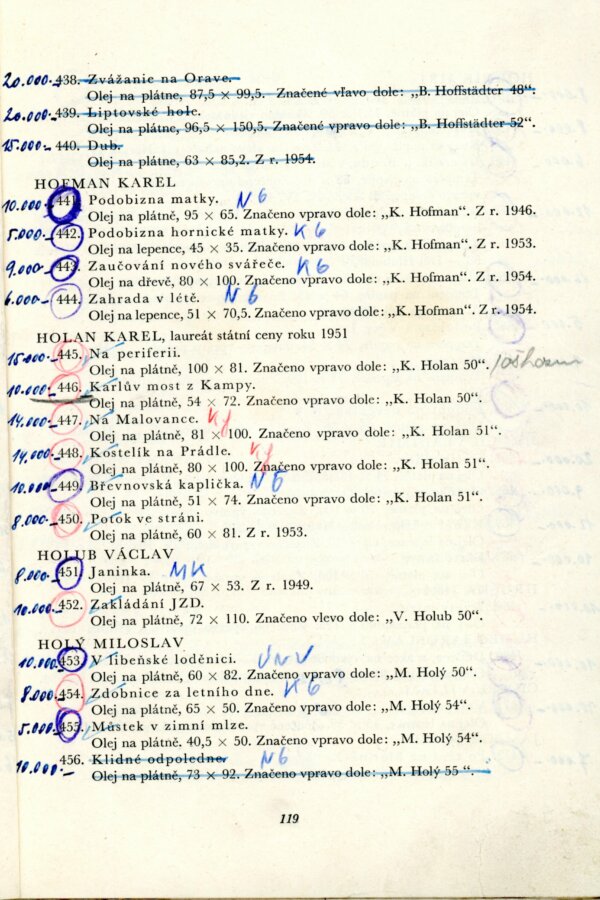 20.000.- 438. Zvážanie na Orave.
Olej na plátne, 87,5 × 99,5. Značené vľavo dole: „B. Hoffstädter 48“.
20.000.- 439. Liptovské hole.
Olej na plátne, 96,5 × 150,5. Značené vpravo dole: „B. Hoffstädter 52“.
15.000.- 440. Dub.
Olej na plátne, 63 × 85,2. Z r. 1954.
HOFMAN KAREL
10.000.- 441. Podobizna matky. NG
Olej na plátně, 95 × 65. Značeno vpravo dole: „K. Hofman“. Z r. 1946.
5.000.- 442. Podobizna hornické matky. KG
Olej na lepence, 45 × 35. Značeno vpravo dole: „K. Hofman“. Z r. 1953.
9.000.- 443. Zaučování nového svářeče. KG
Olej na dřevě, 80 × 100. Značeno vpravo dole: „K. Hofman“. Z r. 1954.
6.000.- 444. Zahrada v létě. NG
Olej na lepence, 51 × 70,5. Značeno vpravo dole: „K. Hofman“. Z r. 1954.
HOLAN KAREL, laureát státní ceny roku 1951
15.000.- 445. Na periferii.
Olej na plátně, 100 × 81. Značeno vpravo dole: „K. Holan 50“.
10.000.- 446. Karlův most z Kampy.
Olej na plátně, 54 × 72. Značeno vpravo dole: „K. Holan 50“.
14.000.- 447. Na Malovance. Kj
Olej na plátně, 81 × 100. Značeno vpravo dole: „K. Holan 51“.
14.000.- 448. Kostelík na Prádle. Kj
Olej na plátně, 80 × 100. Značeno vpravo dole: „K. Holan 51“.
10.000.- 449. Břevnovská kaplička. NG
Olej na plátně, 51 × 74. Značeno vpravo dole: „K. Holan 51“.
8.000.- 450. Potok ve stráni.
Olej na plátně, 60 × 81. Z r. 1953.
HOLUB VÁCLAV
8.000.- 451. Janinka. MK
Olej na plátně, 67 × 53. Z r. 1949.
10.000.- 452. Zakládání JZD.
Olej na plátně, 72 × 110. Značeno vlevo dole: „V. Holub 50“.
HOLÝ MILOSLAV
10.000. 453. V libeňské loděnici. ÚNV
Olej na plátně, 60 × 82. Značeno vpravo dole: „M. Holý 50“.
8.000.- 454. Zdobnice za letního dne. KG
Olej na plátně, 65 × 50. Značeno vpravo dole: „M. Holý 54“.
5.000.- 455. Můstek v zimní mlze.
Olej na plátně. 40,5 × 50. Značeno vpravo dole: „M. Holý 54“.
10.000.- 456. Klidné odpoledne. NG
Olej na plátně, 73 × 92. Značeno vpravo dole: „M. Holý 55 “.
119